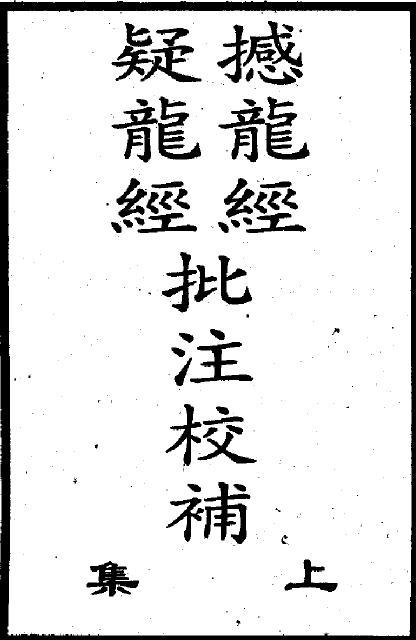 撼龍經
疑龍經
批注校補
上集